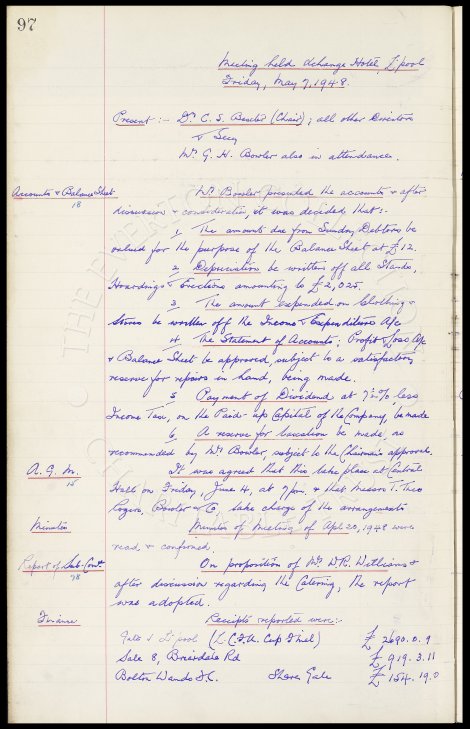 97
Meeting held Exchange Hotel, L'pool
Friday, May 7, 1948.
Present :- Dr. C. S. Baxter (Chair); all other Directors
& Secy
Mr. G. H. Bowler also in attendance.
Accounts & Balance Sheet
18
Mr. Bowler presented the accounts & after
discussion & consideration, it was decided that:-
1. The amounts due from Sundry Debtors be
valued for the purpose of the Balance Sheet at £12.
2. Depreciation be written off all Stands,
Hoardings & Erections amounting to £2,025.
3. The amount expended on Clothing &
Stores be written off the Income & Expenditure A/c
4. The Statement of Accounts; Profit & Loss A/c
& Balance Sheet be approved, subject to a satisfactory
reserve for repairs in hand, being made.
5. Payment of Dividend at 7½% less
Income Tax, on the Paid-up Capital of the Company, be made
6. A reserve for taxation be made, as
recommended by Mr. Bowler, subject to the Chairman's approval.
A. G. M.
15
It was agreed that this take place at Central
Hall on Friday, June 4, at 7pm. & that Messrs T. Theo
Rogers, Bowler & Co, take charge of the arrangements
Minutes
Minutes of Meeting of Apl 20, 1948 were
read, & confirmed.
Report of Sub-Comtt
78
On proposition of Mr. W.R. Williams &
after discussion regarding the Catering, the report
was adopted.
Finance
Receipts reported were:-
Gate v L'pool (L.C.F.A. Cup Final) £ 2690.0.9
Sale 8, Briardale Rd £ 919.3.11
Bolton Wands F.C. Share Gate £ 154.19.0